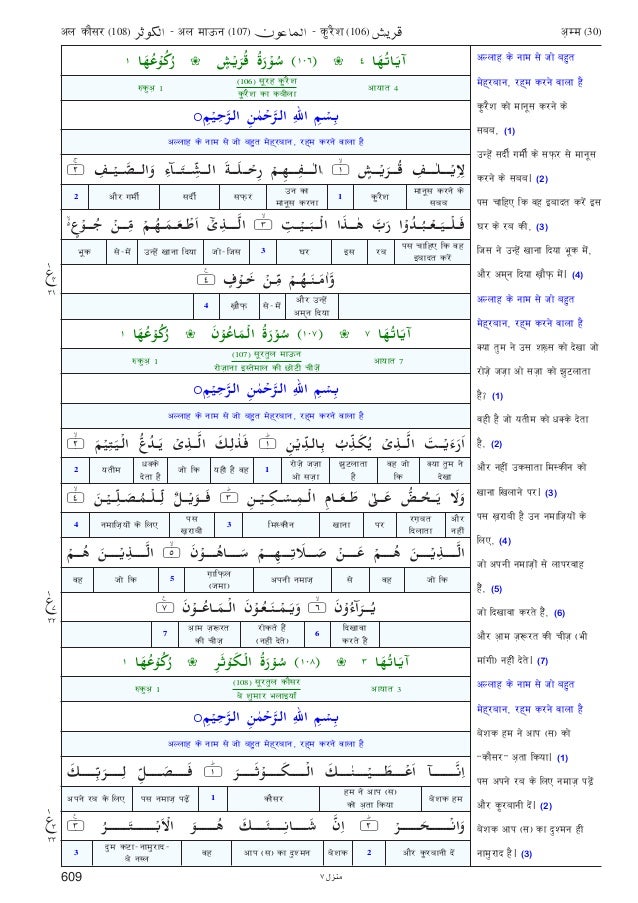 अल कौसर (108) الكوثر - अल माऊन (107) الماعون - कुरैश (106) قريش
अ़म्म (30)
اٰيَاتُهَا ٤ ❀ (١٠٦) سُوْرَةُ قُرَيْشٍ ❀ رُكُوْعُهَا ١
रुकुअ़ 1
(106) सूरह कुरैश
कुरैश का कबीला
आयात 4
بِسْمِ اللهِ الرَّحْمٰنِ الرَّحِيْمِ ○
अल्लाह के नाम से जो बहुत मेहरबान, रहम करने वाला है
لِاِيْلٰفِ قُرَيْشٍ ۙ ١ اٖلٰفِهِمْ رِحْلَةَ الشِّتَآءِ وَالصَّيْفِ ۚ ٢
2 | और गर्मी | सर्दी | सफ़र | उन का मानूस करना | 1 | कुरैश | मानूस करने के सबब
فَلْيَعْبُدُوْا رَبَّ هٰذَا الْبَيْتِ ۙ ٣ الَّذِيْٓ اَطْعَمَهُمْ مِّنْ جُوْعٍ ۙ
भूक | से-में | उन्हें खाना दिया | जो-जिस | 3 | घर | इस | रब | पस चाहिए कि वह इबादत करें
وَّاٰمَنَهُمْ مِّنْ خَوْفٍ ۧ ٤
4 | ख़ौफ़ | से-में | और उन्हें अम्न दिया
اٰيَاتُهَا ٧ ❀ (١٠٧) سُوْرَةُ الْمَاعُوْنَ ❀ رُكُوْعُهَا ١
रुकुअ़ 1
(107) सूरतुल माऊन
रोज़ाना इस्तेमाल की छोटी चीज़ें
आयात 7
بِسْمِ اللهِ الرَّحْمٰنِ الرَّحِيْمِ ○
अल्लाह के नाम से जो बहुत मेहरबान, रहम करने वाला है
اَرَءَيْتَ الَّذِيْ يُكَذِّبُ بِالدِّيْنِ ۭ ١ فَذٰلِكَ الَّذِيْ يَدُعُّ الْيَتِيْمَ ۙ ٢
2 | यतीम | धक्के देता है | जो कि | यही है वह | 1 | रोज़े जज़ा ओ सज़ा | झुटलाता है | वह जो कि | क्या तुम ने देखा
وَلَا يَحُضُّ عَلٰى طَعَامِ الْمِسْكِيْنِ ۭ ٣ فَوَيْلٌ لِّلْمُصَلِّيْنَ ۙ ٤
4 | नमाज़ियों के लिए | पस ख़राबी | 3 | मिस्कीन | खाना | पर | रग़बत दिलाता | और नहीं
الَّذِيْنَ هُمْ عَنْ صَلَاتِهِمْ سَاهُوْنَ ۙ ٥ الَّذِيْنَ هُمْ
वह | जो कि | 5 | ग़ाफ़िल (जमा) | अपनी नमाज़ | से | वह | जो कि
يُرَآءُوْنَ ۙ ٦ وَيَمْنَعُوْنَ الْمَاعُوْنَ ۧ ٧
7 | आम ज़रूरत की चीज़ | रोकते हैं (नहीं देते) | 6 | दिखावा करते हैं
اٰيَاتُهَا ٣ ❀ (١٠٨) سُوْرَةُ الْكَوْثَرِ ❀ رُكُوْعُهَا ١
रुकुअ़ 1
(108) सूरतुल कौसर
बे शुमार भलाइयाँ
आयात 3
بِسْمِ اللهِ الرَّحْمٰنِ الرَّحِيْمِ ○
अल्लाह के नाम से जो बहुत मेहरबान, रहम करने वाला है
اِنَّآ اَعْطَيْنٰكَ الْكَوْثَرَ ۭ ١ فَصَلِّ لِرَبِّكَ
अपने रब के लिए | पस नमाज़ पढ़ें | 1 | कौसर | हम ने आप (स) को अ़ता किया | बेशक हम
وَانْحَرْ ۭ ٢ اِنَّ شَانِئَكَ هُوَ الْاَبْتَرُ ۧ ٣
3 | दुम कटा-नामुराद-बे नस्ल | वह | आप (स) का दुश्मन | बेशक | 2 | और कुरबानी दें
अल्लाह के नाम से जो बहुत
मेहरबान, रहम करने वाला है
कुरैश को मानूस करने के
सबब, (1)
उन्हें सर्दी गर्मी के सफ़र से मानूस
करने के सबब। (2)
पस चाहिए कि वह इबादत करें इस
घर के रब की, (3)
जिस ने उन्हें खाना दिया भूक में,
और अम्न दिया ख़ौफ़ में। (4)
अल्लाह के नाम से जो बहुत
मेहरबान, रहम करने वाला है
क्या तुम ने उस शख़्स को देखा जो
रोज़े जज़ा ओ सज़ा को झुटलाता
है? (1)
वही है जो यतीम को धक्के देता
है, (2)
और नहीं उकसाता मिस्कीन को
खाना खिलाने पर। (3)
पस ख़राबी है उन नमाज़ियों के
लिए, (4)
जो अपनी नमाज़ों से लापरवाह
हैं, (5)
जो दिखावा करते हैं, (6)
और आम ज़रूरत की चीज़ (भी
मांगी) नहीं देते। (7)
अल्लाह के नाम से जो बहुत
मेहरबान, रहम करने वाला है
बेशक हम ने आप (स) को
"कौसर" अ़ता किया। (1)
पस अपने रब के लिए नमाज़ पढ़ें
और कुरबानी दें। (2)
बेशक आप (स) का दुश्मन ही
नामुराद है। (3)
609
منزل ٧